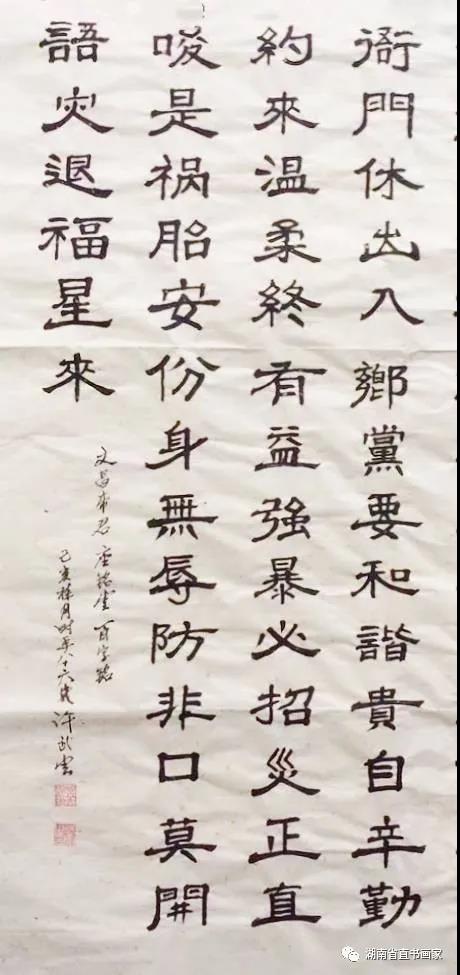 衙門休出入鄉黨要和諧貴自辛勤
約來温柔終有益强暴必招災正直
唆是祸胎安份身無辱防非口莫開
語灾退福星來
文昌帝君 座銘 百字銘
己亥 月时年八十六歲 许武雲
湖南省直书画家